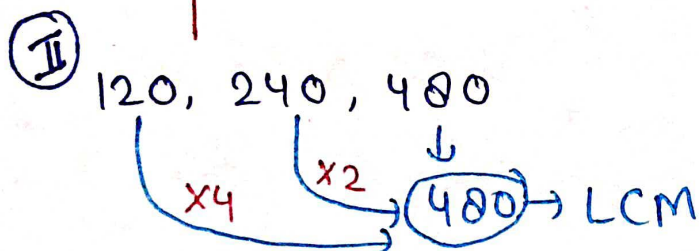 II
120, 240, 480
x4 x2 480 → LCM